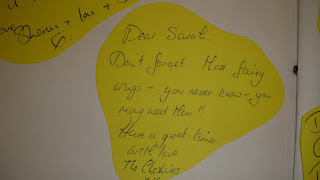 Sherri + Ian +
Dear Sarah,
Don't forget those fairy
wings – you never know – you
may need them!!
Have a great time
with love
The Cheshires